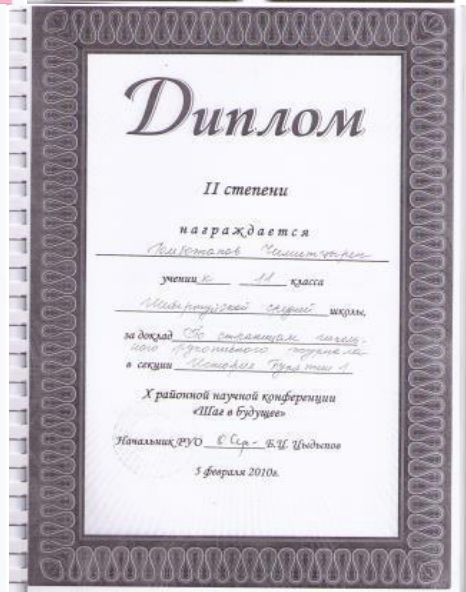 Диплом
II степени
награждается
Чимитцырен
учени к 11 класса
средней школы,
за доклад По страницам школь-
ного рукописного журнала
в секции История Бурятии
X районной научной конференции
«Шаг в будущее»
Начальник РУО Б.Ц. Цыдыпов
5 февраля 2010г.